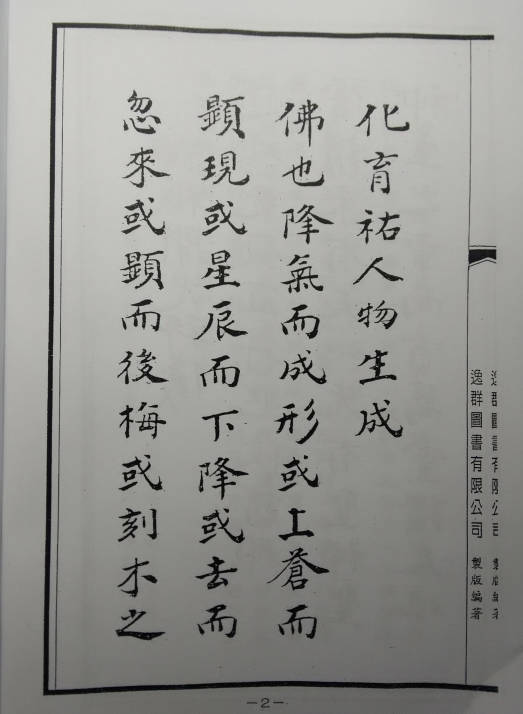 化育祐人物生成
佛也降氣而成形或上蒼而
顯現或星辰而下降或去而
忽來或顯而後梅或刻木之
逸群圖書有限公司 製版編著
逸群圖書有限公司 製版編著
-2-